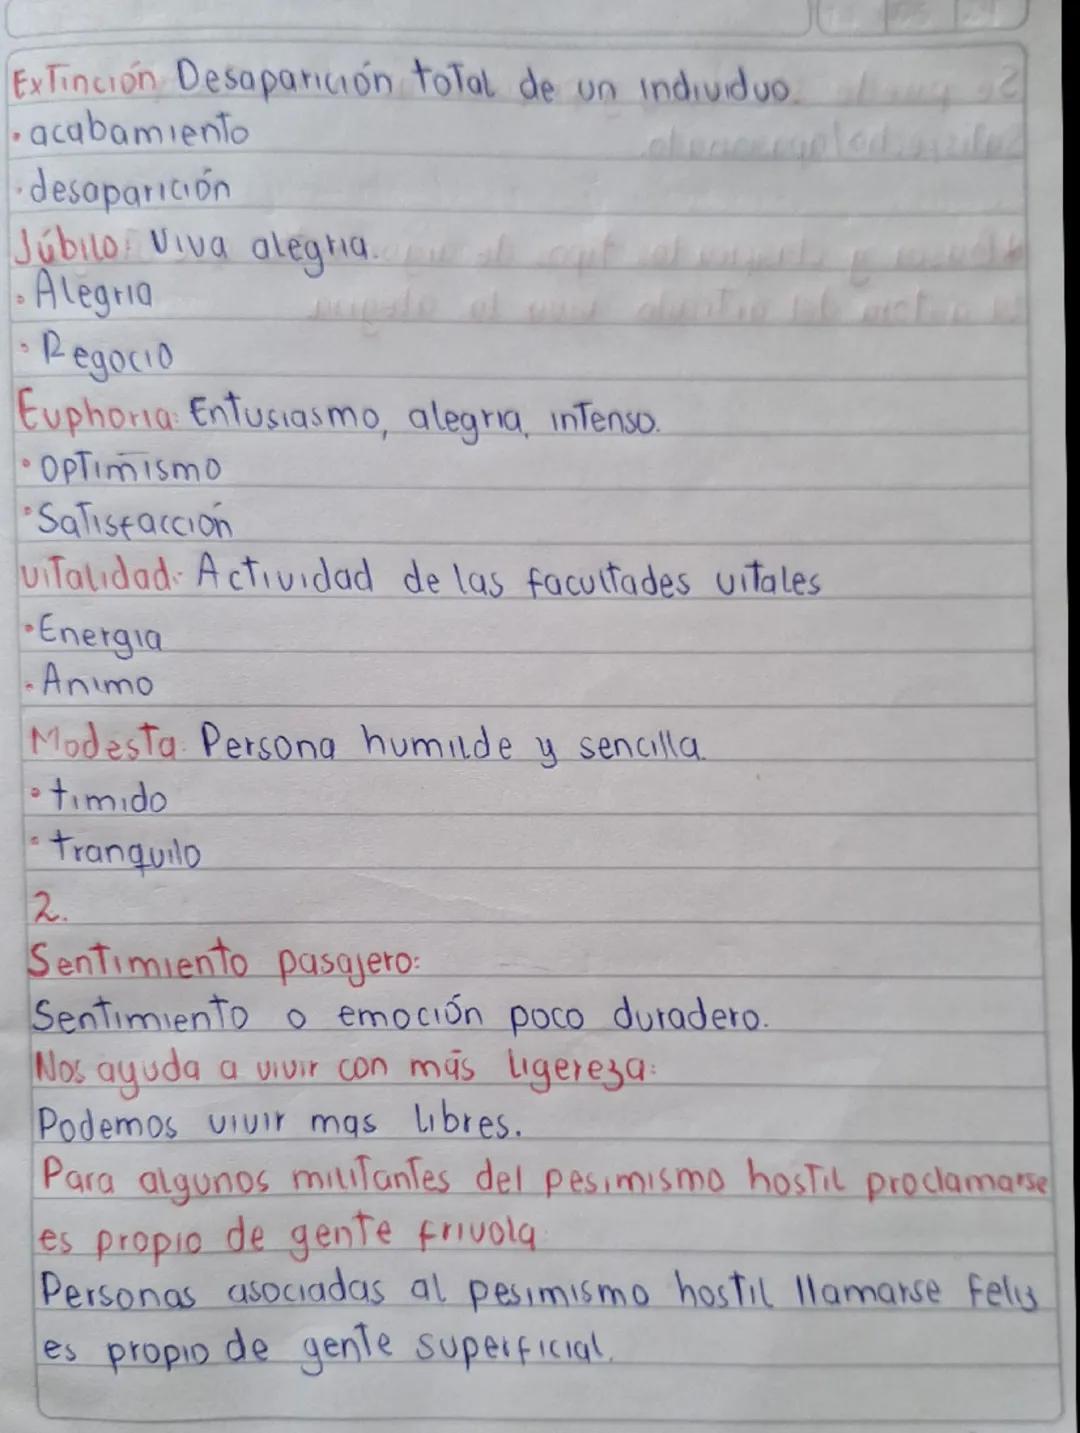 Extinción Desaparición total de un individuo.
• acabamiento
• desaparición
Júbilo: Viva alegria.
• Alegria
• Regocio
Euphoria: Entusiasmo, alegria, intenso.
• Optimismo
• Satisfacción
vitalidad: Actividad de las facultades vitales
• Energia
• Animo
Modesta: Persona humilde y sencilla.
• timido
• tranquilo
2.
Sentimiento pasajero:
Sentimiento o emoción poco duradero.
Nos ayuda a vivir con más ligereza:
Podemos vivir mas libres.
Para algunos militantes del pesimismo hostil proclamarse
es propio de gente frivola:
Personas asociadas al pesimismo hostil llamarse feliz
es propio de gente superficial.